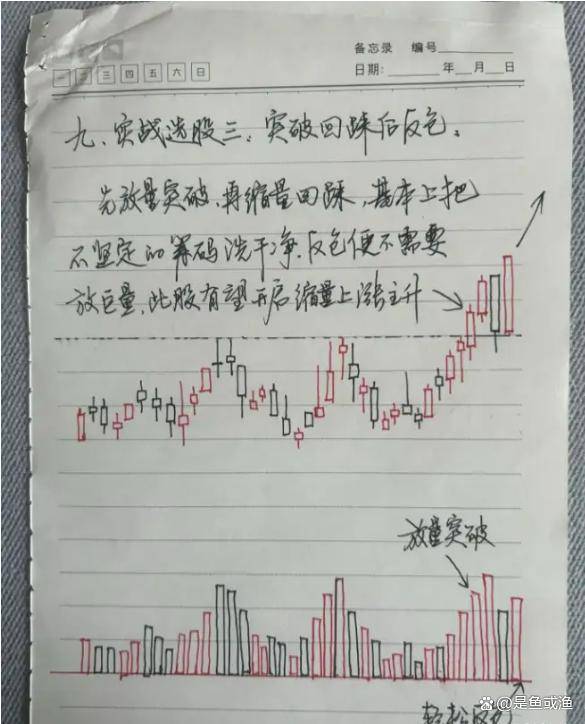 备忘录 编号
一 二 三 四 五 六 日
日期: 年 月 日
九、实战选股三、突破回踩后反包。
先放量突破,再缩量回踩,基本上把
不坚定的筹码洗干净.反包便不需要
放巨量.此股有望开启缩量上涨主升
放量突破
轻松反包
@是鱼或渔